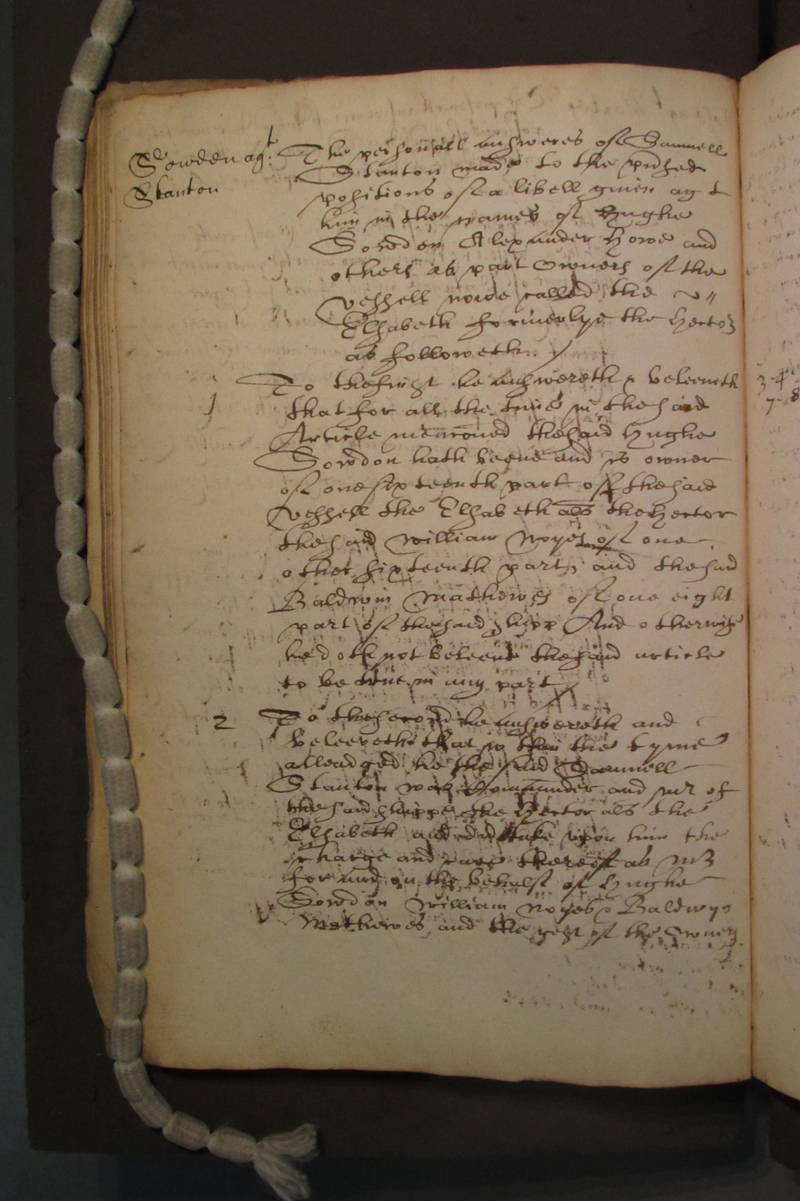 Sowden agt
Stanton
The personall answeres of Samuell
Stanton made to the prtded
positions of a libell given agt
him in the names of Hughe
Sowden Alexander Howe and
others as part owners of the
vessell nowe called the
Elizabeth formerlye the Hector
as followeth
1 To the first he answereth & beleeveth
that for all the time in the said
Article mencioned the said Hughe
Sowdon hath beene and is owner
of one sixteenth part of the said
vessell the Elizabeth als the Hector
the said William Noyes of one
other sixteenth part, and the said
Baldwin Mathewes of one eight
part of the said shipp And otherwise
he doth not beleeve the said article
to be true in any part
2 To the second he answereth and
beleeveth that in the tyme
alleadged he the said Samuell
Stanton was Commander and mr of
the said shippe the Hector als the
Elizabeth and did take upon him the
charge and care thereof as mr
for and in the behalf of Hughe
Sowdon William Noyes & Baldwyn
Mathewes and the rest of the owners
3 . 4
7 . 8